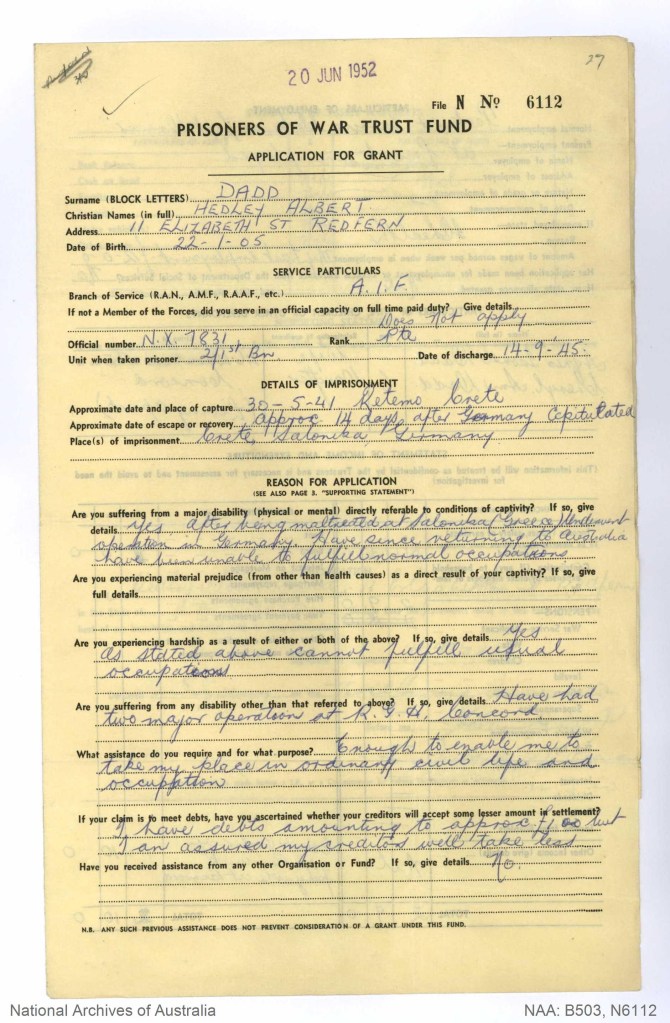 20 JUN 1952
27
File N No 6112
PRISONERS OF WAR TRUST FUND
APPLICATION FOR GRANT
Surname (BLOCK LETTERS) DADD
Christian Names (in full) HEDLEY ALBERT.
Address 11 ELIZABETH ST REDFERN
Date of Birth 22-1-05
SERVICE PARTICULARS
Branch of Service (R.A.N., A.M.F., R.A.A.F., etc.) A.I.F.
If not a Member of the Forces, did you serve in an official capacity on full time paid duty? Give details
Does Not apply
Official number N.X. 7831 Rank Pte
Unit when taken prisoner 2/1st Bn Date of discharge 14-9-45.
DETAILS OF IMPRISONMENT
Approximate date and place of capture 30-5-41 Retemo Crete
Approximate date of escape or recovery approx 14 days after Germany Capitulated
Place(s) of imprisonment Crete, Salonika, Germany
REASON FOR APPLICATION
(SEE ALSO PAGE 3. "SUPPORTING STATEMENT")
Are you suffering from a major disability (physical or mental) directly referable to conditions of captivity? If so, give
details Yes after being maltreated at Salonika (Greece) Underwent
operation in Germany. Have since returning to Australia
have been unable to fulfil normal occupations
Are you experiencing material prejudice (from other than health causes) as a direct result of your captivity? If so, give
full details
Are you experiencing hardship as a result of either or both of the above? If so, give details Yes
As stated above cannot fulfill usual
occupations
Are you suffering from any disability other than that referred to above? If so, give details Have had
two major operation at R.G.H. Concord.
What assistance do you require and for what purpose? Enough to enable me to
take my place in ordinary civil life and
occupation
If your claim is to meet debts, have you ascertained whether your creditors will accept some lesser amount in settlement?
I have debts amounting to approx but
I an assured my creditors will take less
Have you received assistance from any other Organisation or Fund? If so, give details No.
N.B. ANY SUCH PREVIOUS ASSISTANCE DOES NOT PREVENT CONSIDERATION OF A GRANT UNDER THIS FUND.
National Archives of Australia NAA: B503, N6112